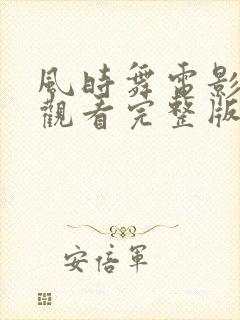 風時舞電影
觀看完整版
安倍軍